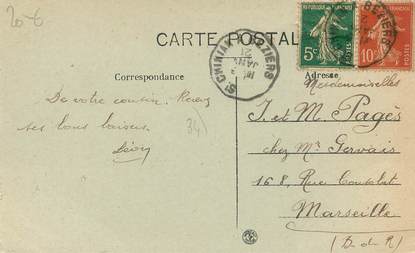 20-6
CARTE POSTALE
REPUBLIQUE FRANÇAISE
5c POSTES
10c POSTES
ST CHINIAN A BEZIERS
JANV
21
Correspondance
Adresse
Mesdemoiselles
De votre cousin. Recevez
ses bons baisers.
Léon
34)
J. et M. Pagès
chez Mr Gervais
168, Rue Consolat
Marseille
(B. du R)